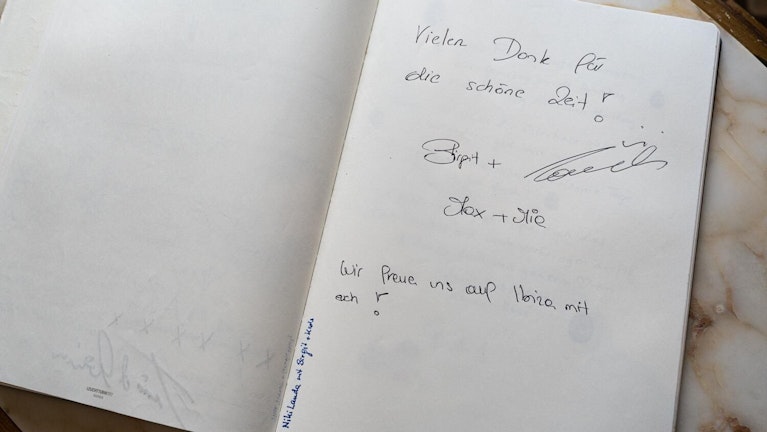 Vielen Dank für
die schöne Zeit!
Birgit +
Max + Mia
Wir freuen uns auf Ibiza mit
euch!
Niki Lauda mit Birgit + Kids
LEUCHTTURM1917